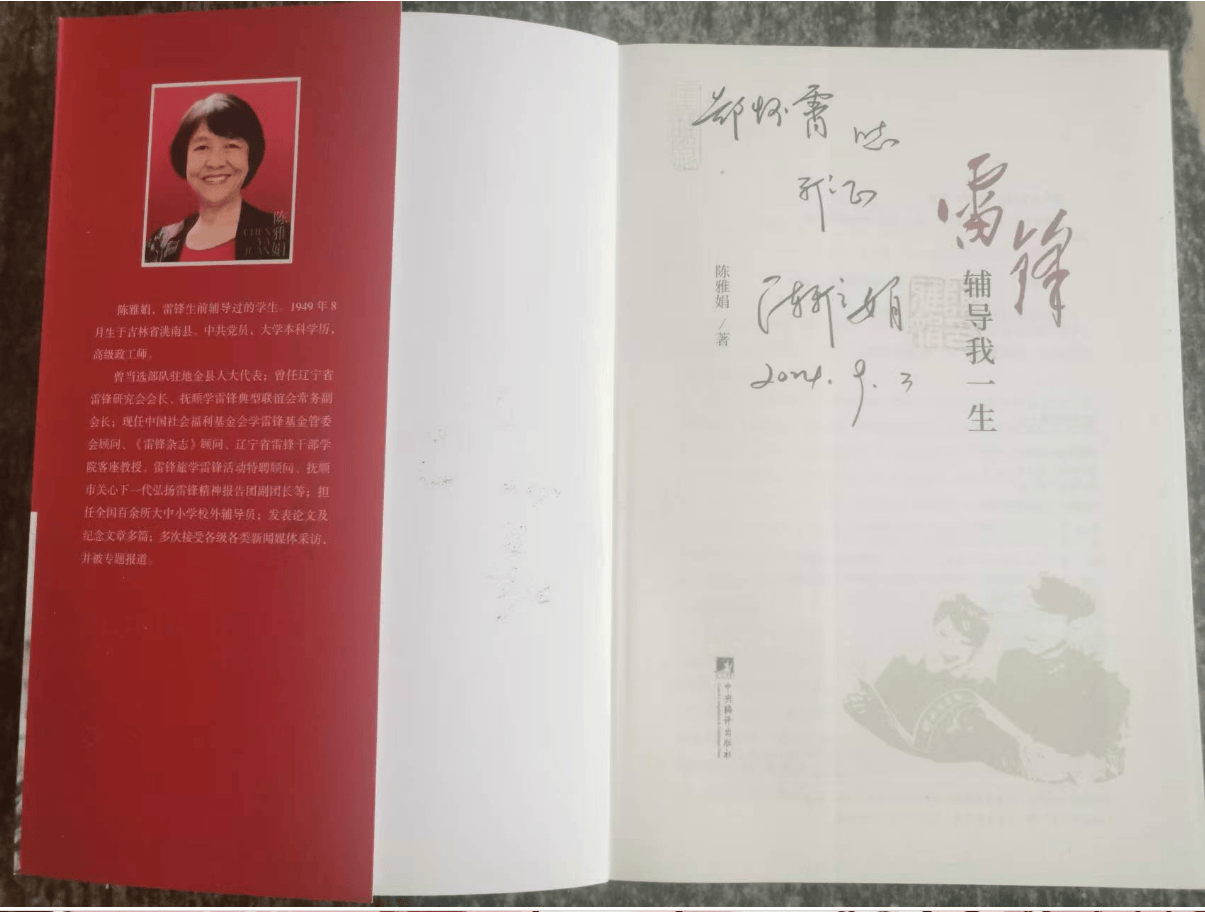 陈雅娟
CHEN
YA
JUAN
陈雅娟，雷锋生前辅导过的学生。1949 年 8
月生于吉林省洮南县。中共党员，大学本科学历，
高级政工师。
曾当选部队驻地金县人大代表；曾任辽宁省
雷锋研究会会长、抚顺学雷锋典型联谊会常务副
会长；现任中国社会福利基金会学雷锋基金管委
会顾问、《雷锋杂志》顾问、辽宁省雷锋干部学
院客座教授。雷锋旅学雷锋活动特聘顾问、抚顺
市关心下一代弘扬雷锋精神报告团副团长等；担
任全国百余所大中小学校外辅导员；发表论文及
纪念文章多篇；多次接受各级各类新闻媒体采访，
并被专题报道。
雷锋
辅导我一生
陈雅娟／著
郑怀霄
陈雅娟
2024. 9. 3
中央编译出版社